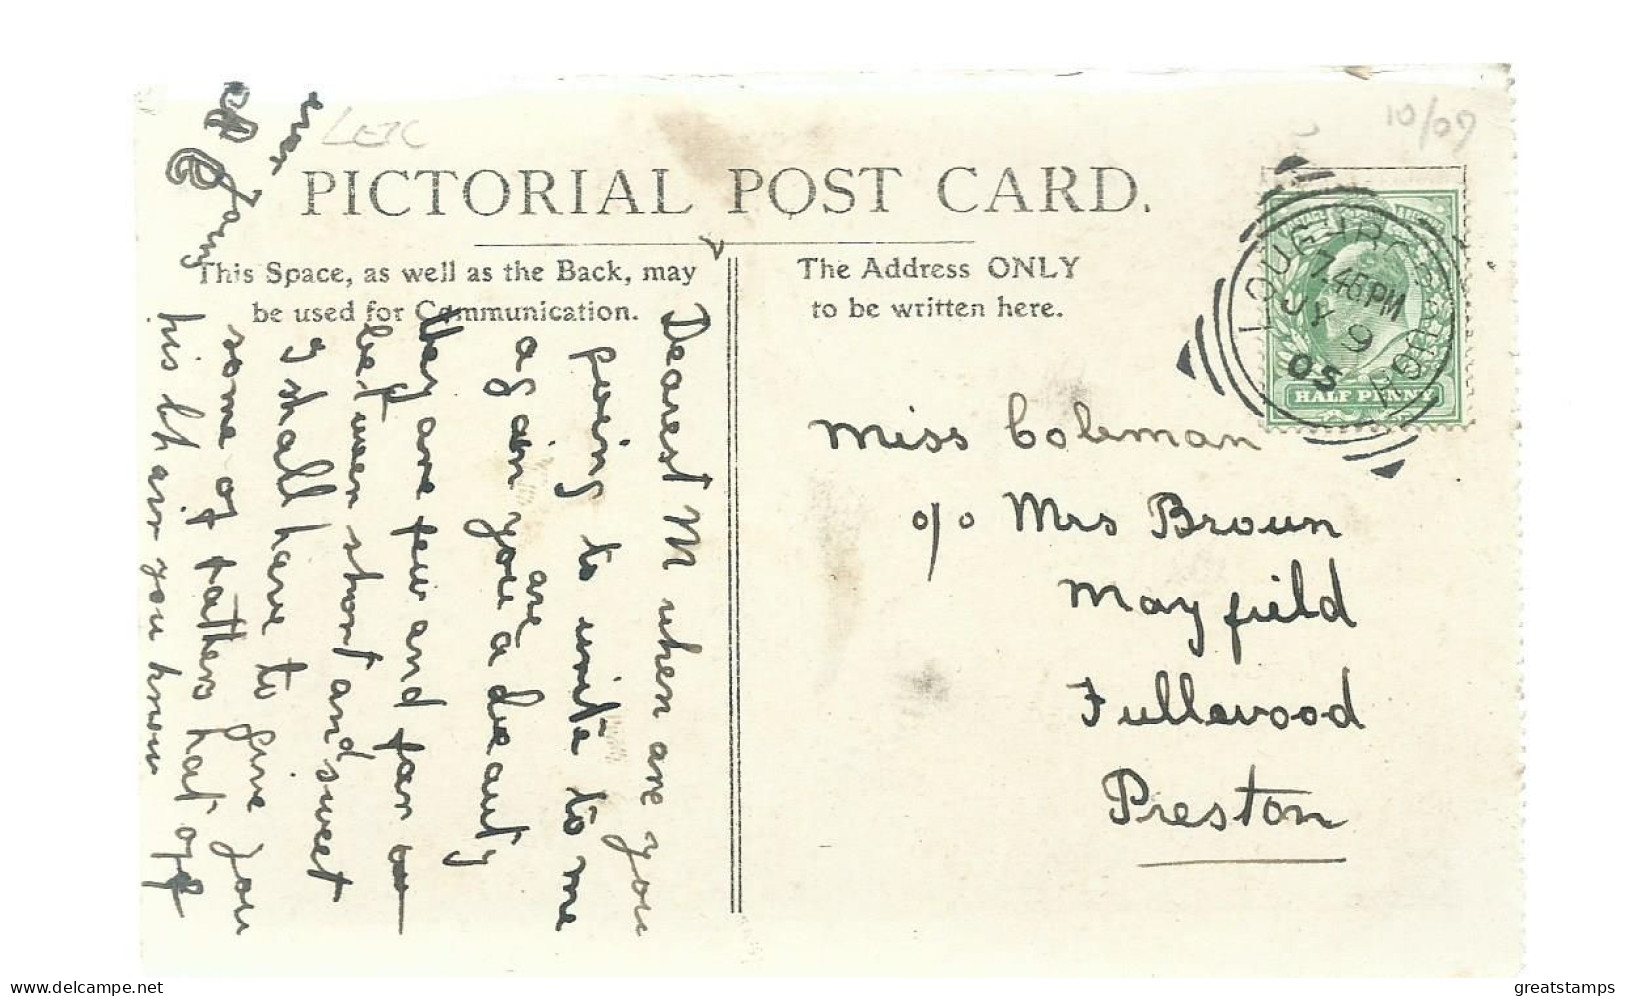 LEIC
10/09
PICTORIAL POST CARD.
This Space, as well as the Back, may
be used for Communication.
The Address ONLY
to be written here.
LOUGHBOROUGH
7.45 PM
JY 9
05
HALF PENNY
Miss Coleman
c/o Mrs Broun
Mayfield
Fullewood
Preston
Dearest M when are you
going to write to me
again you are a beauty
they are few and far
between short and sweet
I shall have to give you
some of fathers hat off
his chair you know
ever
Fanny
www.delcampe.net
greatstamps